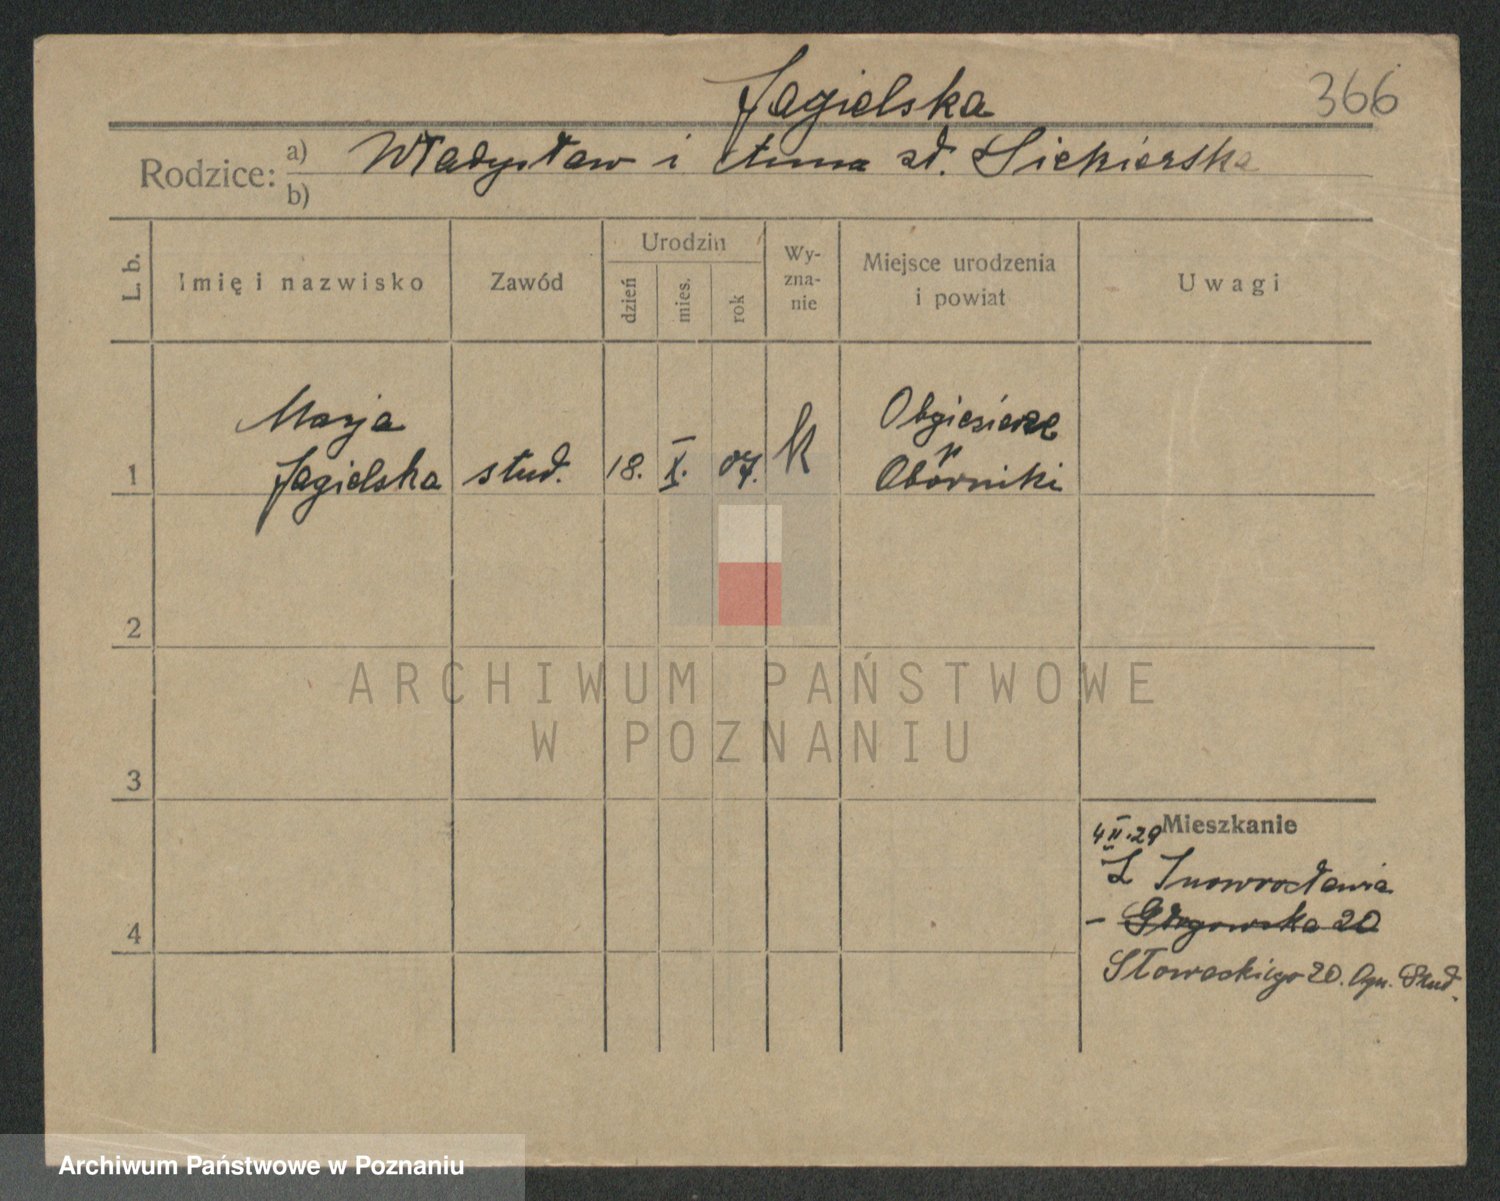 Jagielska
366
Rodzice: a) Władysław i Anna zd. Siekierska
b)
L. b.
Imię i nazwisko
Zawód
Urodzin
dzień
mies.
rok
Wy-
zna-
nie
Miejsce urodzenia
i powiat
Uwagi
1
Marja
Jagielska
stud.
18.
X.
07.
k
Obornniki
2
3
4
ARCHIWUM PAŃSTWOWE
W POZNANIU
Mieszkanie
4 II. 29
Z Inowrocławia
– Głogowska 20
Słowackiego 20. Ogn. Stud.
Archiwum Państwowe w Poznaniu